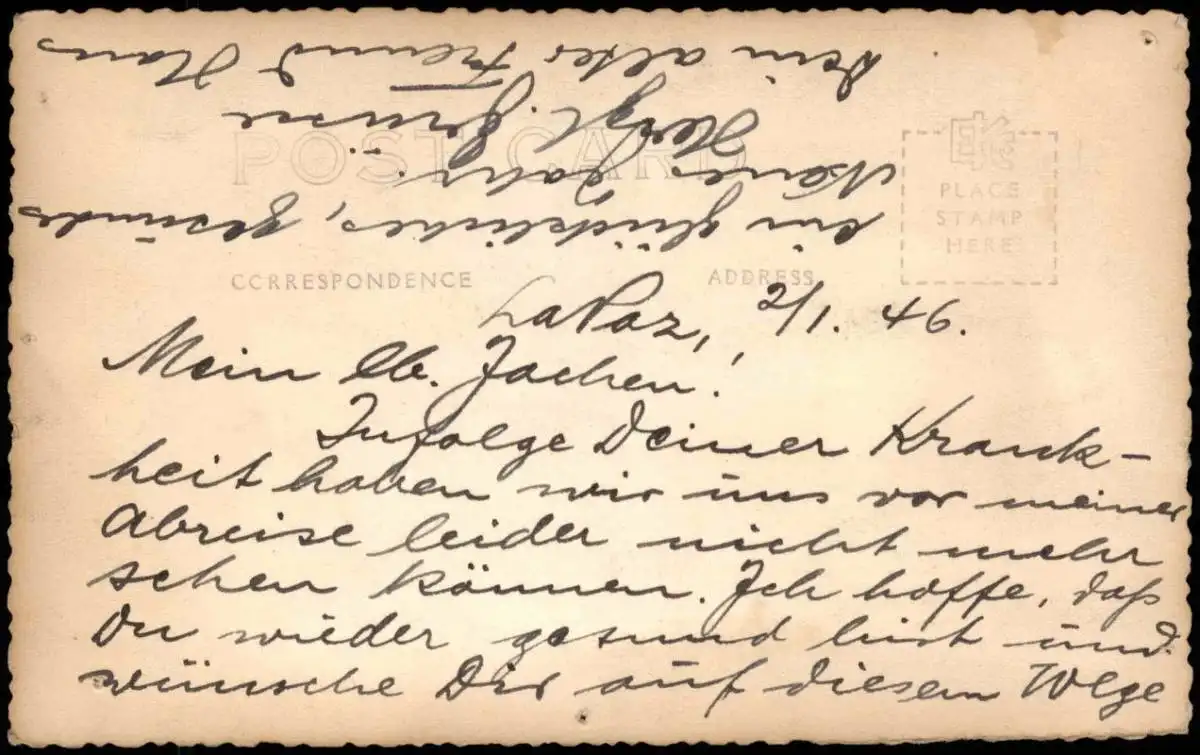 LaPaz, 2/1. 46.
Mein lb. Jochen!
Infolge Deiner Krank-
heit haben wir uns vor meiner
Abreise leider nicht mehr
sehen können. Ich hoffe, daß
Du wieder gesund bist und
wünsche Dir auf diesem Wege
ein glückliches, gesundes
Neues Jahr.
Herzl. Grüsse
Dein alter Freund Hans
POST CARD
CORRESPONDENCE
ADDRESS
PLACE
STAMP
HERE